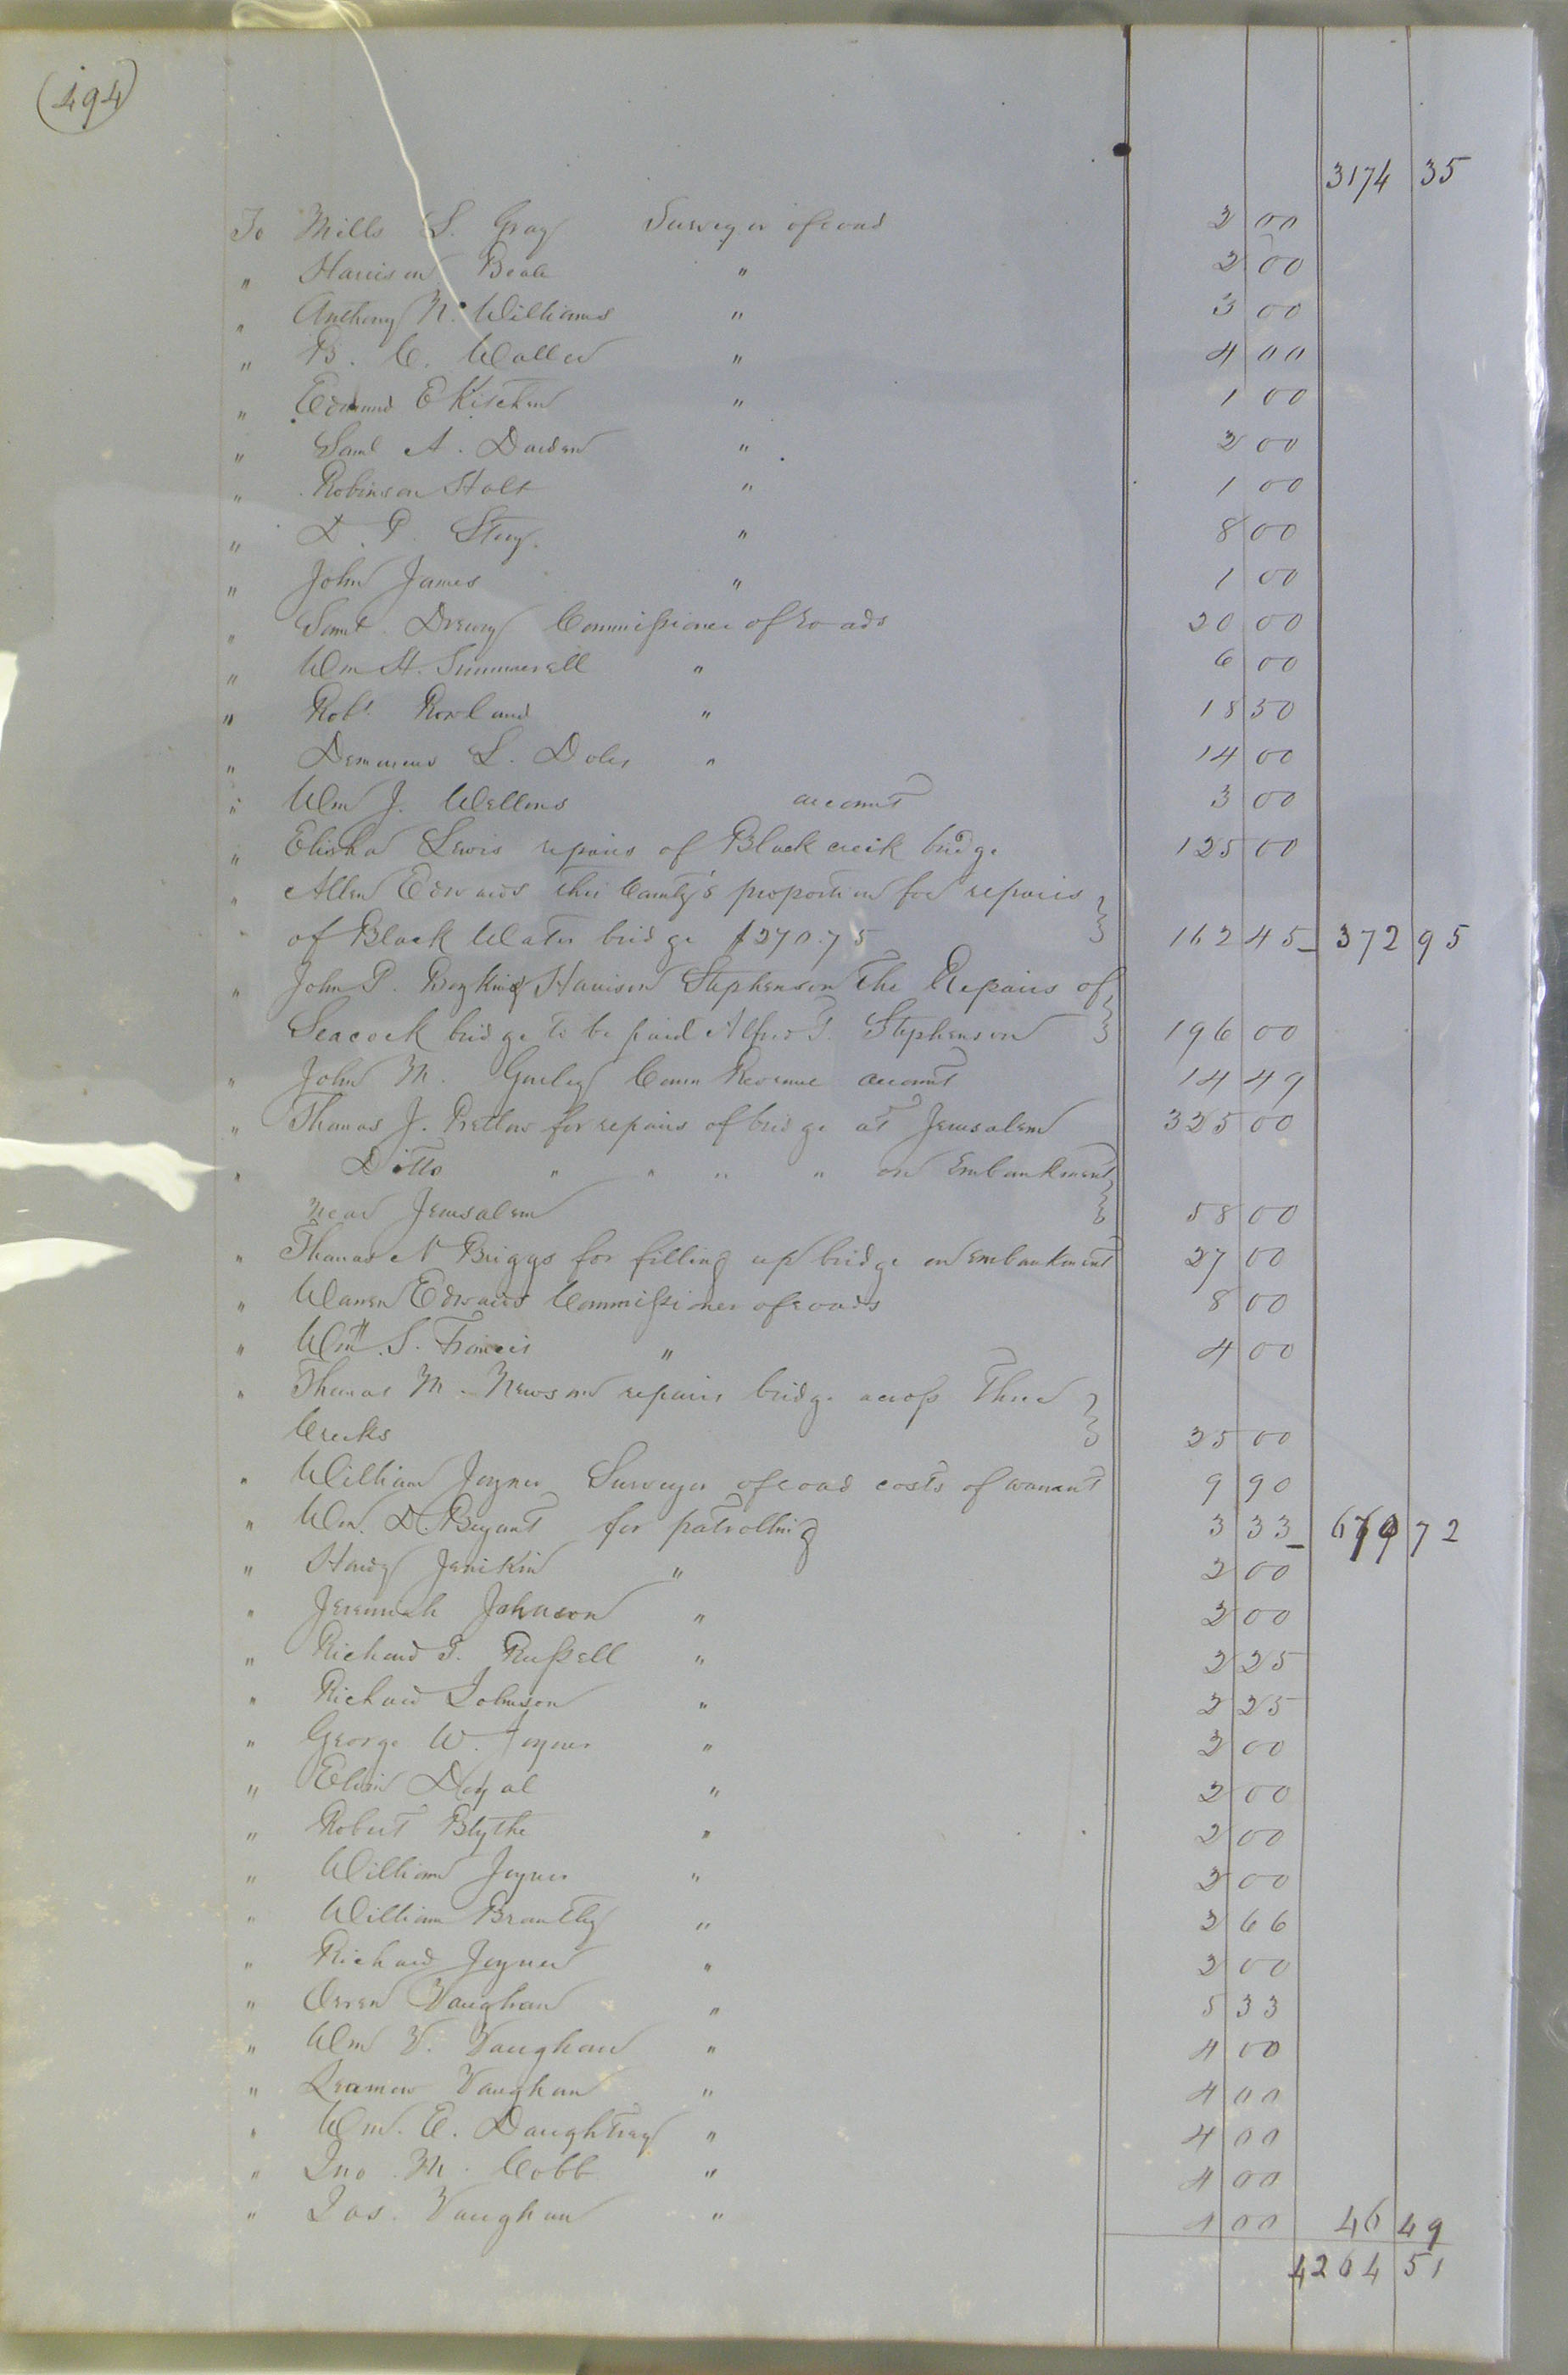 (494)
3174 35
To Mills L. Gray Surveyor of road 2 00
" Harrison Beale " 2 00
" Anthony N. Williams " 3 00
" B. C. Waller " 4 00
" Edmund E Kitchen " 1 00
" Saml A. Darden " 2 00
" Robinson Holt " 1 00
" D. P. " 8 00
" John James " 1 00
" Saml. Drewry Commissioner of roads 20 00
" Wm H. Summerell " 6 00
" Robt. Rowland " 18 50
" L. Doles " 14 00
" Wm J. Wellons account 3 00
" Elisha Lewis repairs of Black creek bridge 125 00
" Allen Edwards this County's proportion for repairs
" of Black Water bridge $270.75 162 45 372 95
" John P. Boykin & Harrison Stephenson the Repairs of
Seacock bridge to be paid Alfred T. Stephenson 196 00
" John M. Gurley Comm Revenue account 14 49
" Thomas J. Pretlow for repairs of bridge at Jerusalem 325 00
" Ditto " " " " on Embankment
near Jerusalem 58 00
" Thomas N Briggs for filling up bridge on embankment 27 00
" Warren Edwards Commissioner of roads 8 00
" Wm. S. Francis " 4 00
" Thomas M. Newsom repairs bridge across Three
Creeks 25 00
" William Joyner Surveyor of road costs of warrant 9 90
" Wm. D. Bryant for patrolling 3 33 670 72
" Hardy Jenikin " 2 00
" Jeremiah Johnson " 2 00
" Richard T. Russell " 2 25
" Richard Johnson " 2 25
" George W. Joyner " 2 00
" Elvin Doyal " 2 00
" Robert Blythe " 2 00
" William Joyner " 2 00
" William Brantley " 2 66
" Richard Joyner " 2 00
" Orren Vaughan " 5 33
" Wm V. Vaughan " 4 00
" Vaughan " 4 00
" Wm. E. Daughtrey " 4 00
" Jno. M. Cobb " 4 00
" Jas. Vaughan " 4 00 46 49
4264 51